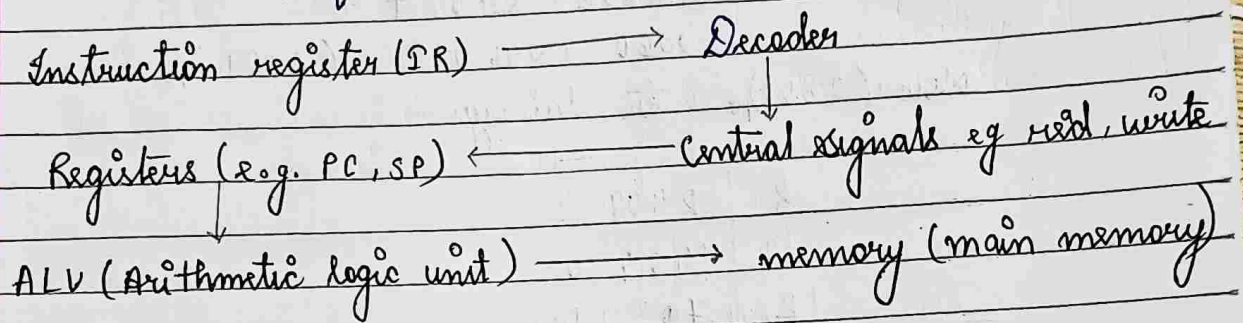 Instruction register (IR) → Decoder
Registers (e.g. PC, SP) ← Control signals eg read, write
ALU (Arithmetic logic unit) → memory (main memory)